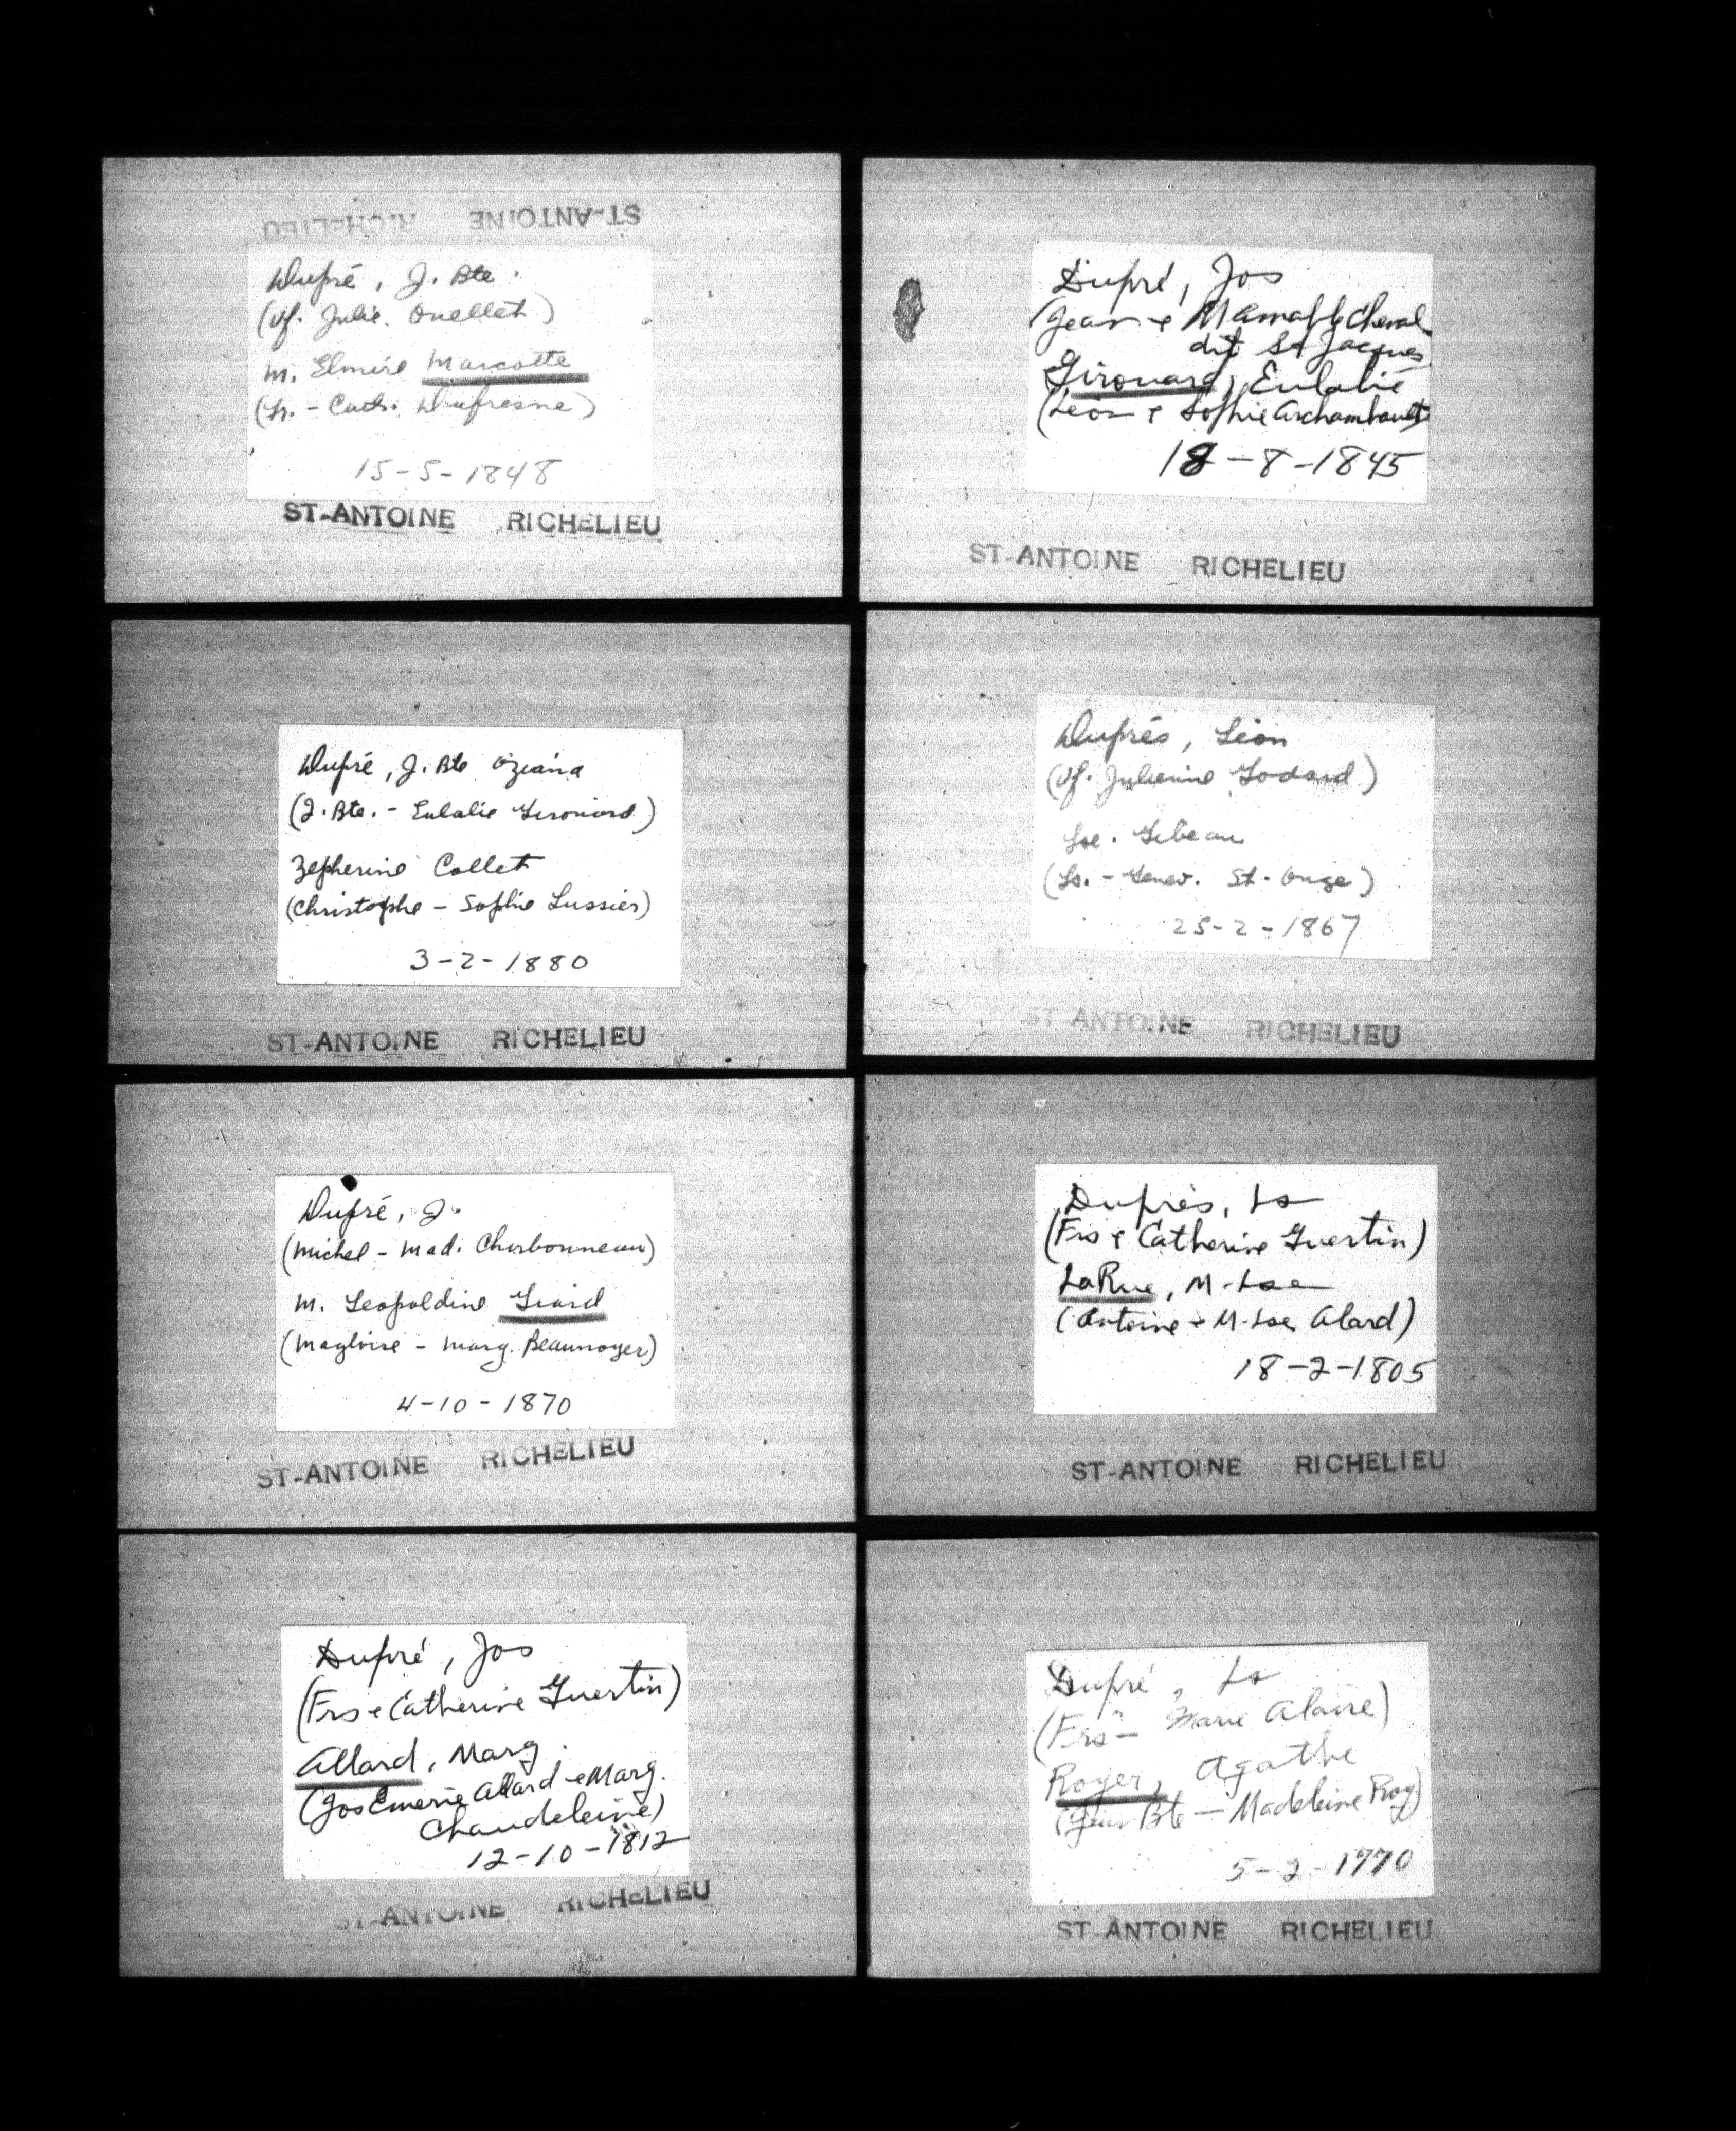 ST-ANTOINE RICHELIEU
Dupré, J. Bte
(vf. Julie Ouellet)
m. Elmire Marcotte
(Ls. - Cath. Dufresne)
15-5-1848
ST-ANTOINE RICHELIEU
Dupré, Jos
(Jean & M Amable Cheval
dit St Jacques
Girouard, Eulalie
(Léon & Sophie Archambault
18-8-1845
ST-ANTOINE RICHELIEU
Dupré, J. Bte Oziana
(J. Bte. - Eulalie Girouard)
Zepherine Collet
(Christophe - Sophie Lussier)
3-2-1880
ST-ANTOINE RICHELIEU
Duprés, Léon
(vf. Julienne Godard)
Lse. Gibeau
(Ls. - Genev. St-Onge)
25-2-1867
ST-ANTOINE RICHELIEU
Dupré, J.
(Michel - Mad. Charbonneau)
m. Leopoldine Giard
(Magloire - Marg. Beaunoyer)
4-10-1870
ST-ANTOINE RICHELIEU
Duprés, Ls
(Frs & Catherine Guertin)
LaRue, M-Lse
(Antoine & M-Lse Alard)
18-2-1805
ST-ANTOINE RICHELIEU
Dupré, Jos
(Frs & Catherine Guertin)
Allard, Marg.
(Jos Emerie Allard & Marg.
Chaudeleine)
12-10-1812
ST-ANTOINE RICHELIEU
Dupré, Ls
(Frs - Marie Alaire)
Royer, Agathe
(Jean Bte - Madeleine Roy)
5-2-1770
ST-ANTOINE RICHELIEU